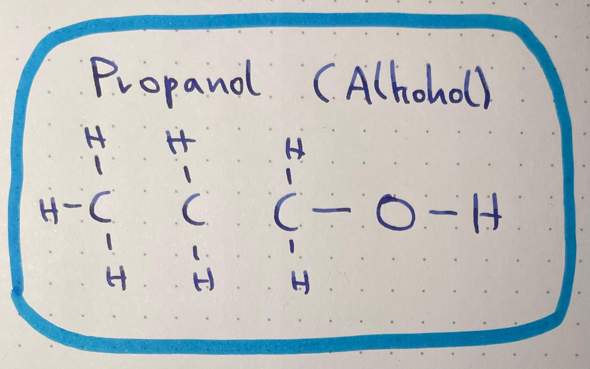 Propanol (Alkohol)
H H H
| | |
H-C C C - O - H
| | |
H H H